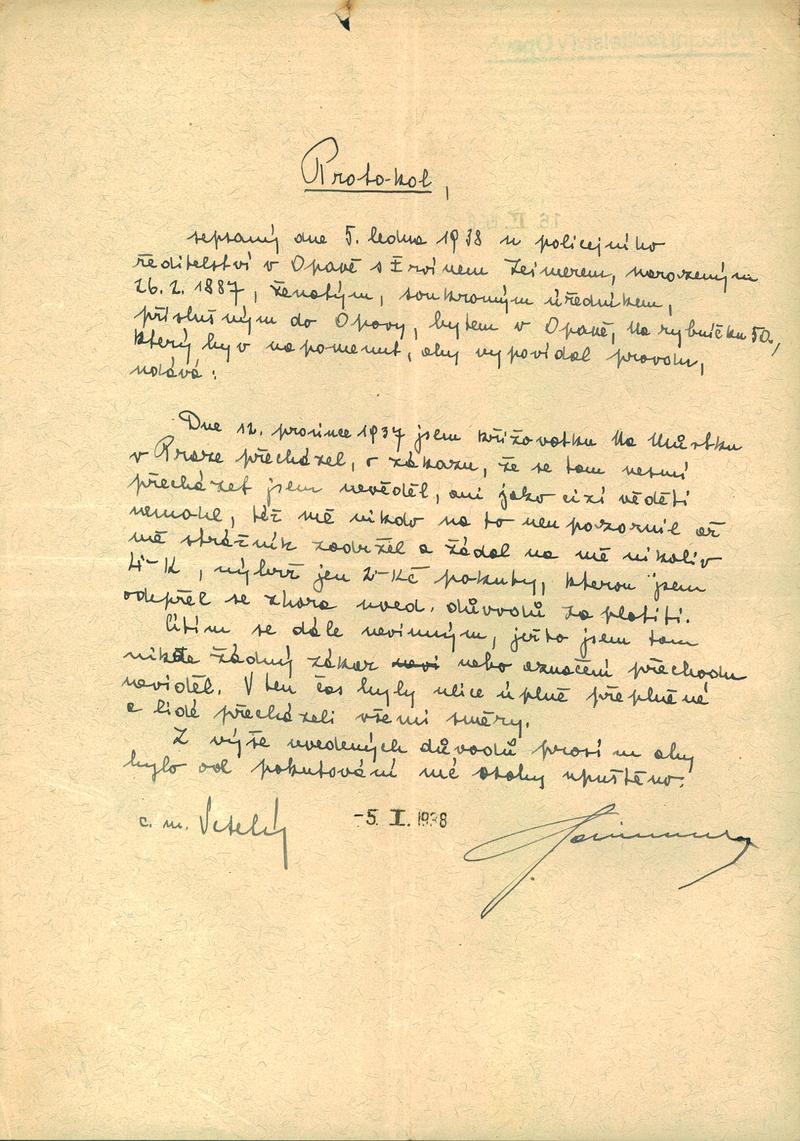 Protokol,
sepsaný dne 5. ledna 1938 u policejního
ředitelství v Opavě s Ervínem Zeimerem, narozeným
26.2.1887, ženatým, soukromým úředníkem,
příslušným do Opavy, bytem v Opavě, Na rybníčku 50,
který byv napomenut, aby vypovídal pravdu,
udává:
Dne 12. prosince 1937 jsem křižovatku Na Můstku
v Praze přecházel, o zákazu, že se tam nesmí
přecházet jsem nevěděl, ani jako cizí věděti
nemohl, též mě nikdo na to neupozornil až
mě strážník zadržel a žádal na mě nikoliv
K, nýbrž jen 2-Kč pokuty, kterou jsem
odepřel se zhora uved. důvodů zaplatiti.
Cítím se dále nevinným, ježto jsem tam
nikde žádný zákaz nebo označení přechodu
neviděl. V ten čas byly ulice úplně přeplněné
a lidé přecházeli všemi směry.
Z výše uvedených důvodů prosím aby
bylo od pokutování mé osoby upuštěno.
c. m. Veselý
-5. I. 1938